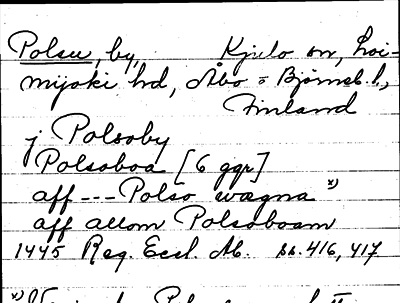 Polsu, by, Kjulo sn, Loi-
mijoki hd, Åbo o Björneb. l.,
Finland
j Polsoby
Polsoboa [6 ggr]
aff --- Polso wægna x)
aff allom Polsoboam
1445 Reg. Eccl. Ab. ss. 416, 417